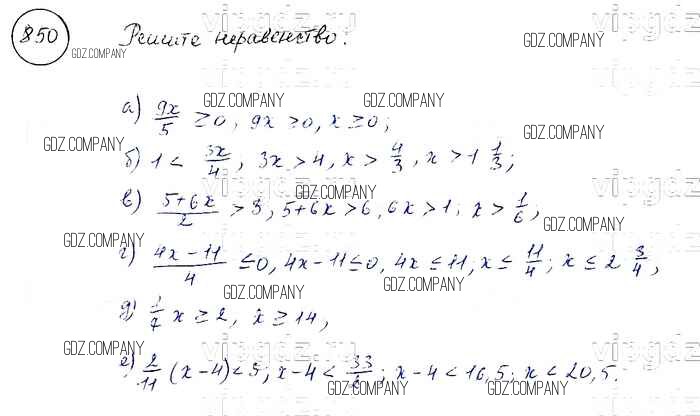 850 Решите неравенство:
а) 9x/5 ≥ 0, 9x ≥ 0, x ≥ 0;
б) 1 < 3x/4, 3x > 4, x > 4/3, x > 1 1/3;
в) (5+6x)/2 > 3, 5+6x > 6, 6x > 1, x > 1/6;
г) (4x-11)/4 ≤ 0, 4x-11 ≤ 0, 4x ≤ 11, x ≤ 11/4; x ≤ 2 3/4,
д) 1/7 x ≥ 2, x ≥ 14,
е) 2/11 (x-4) < 3; x-4 < 33/2; x-4 < 16,5; x < 20,5.
GDZ.COMPANY
GDZ.COMPANY
GDZ.COMPANY
GDZ.COMPANY
GDZ.COMPANY
GDZ.COMPANY
GDZ.COMPANY
GDZ.COMPANY
GDZ.COMPANY
GDZ.COMPANY
GDZ.COMPANY
GDZ.COMPANY
GDZ.COMPANY